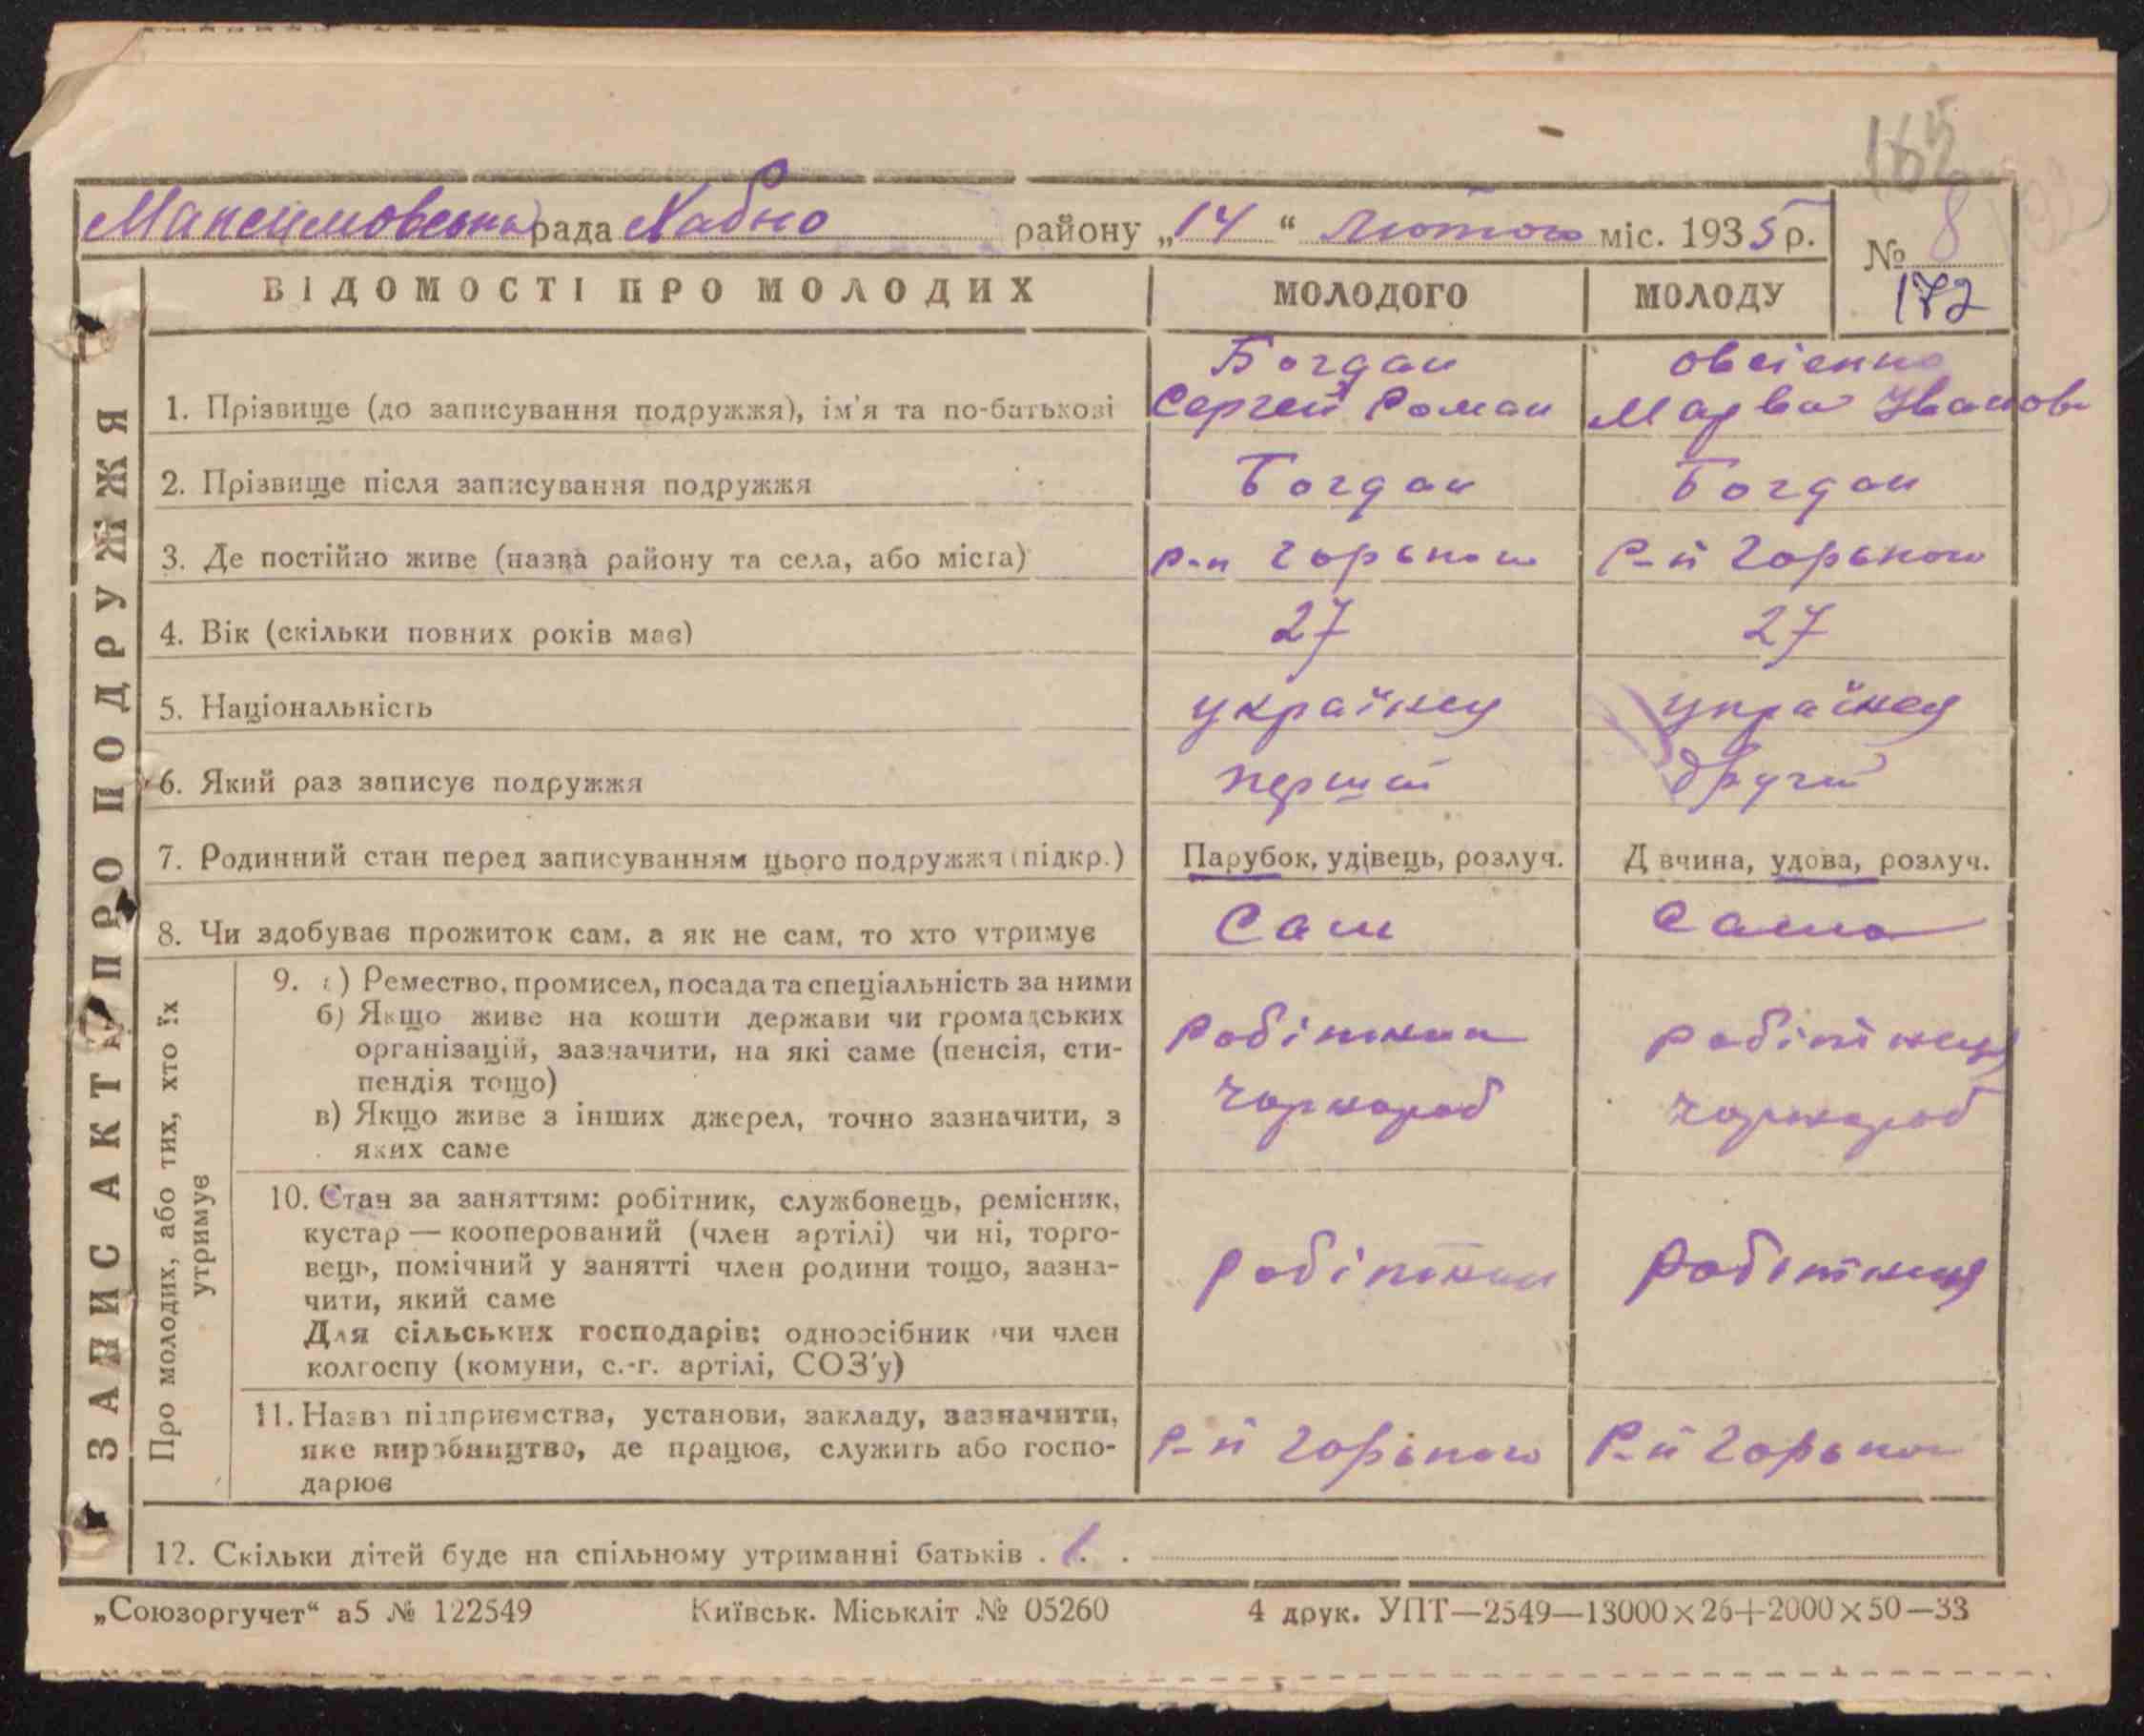 165
Максимовська рада Хабно району „14“ Лютого міс. 1935 р.
№ 8
172
ВІДОМОСТІ ПРО МОЛОДИХ
МОЛОДОГО
МОЛОДУ
ЗАПИС АКТУ ПРО ПОДРУЖЖЯ
1. Прізвище (до записування подружжя), ім'я та по-батькові
Богдан
Сергей Роман
Овсіенко
Марва Іванов
2. Прізвище після записування подружжя
Богдан
Богдан
3. Де постійно живе (назва району та села, або міста)
р-п Горького
Р-й Горького
4. Вік (скільки повних років має)
27
27
5. Національність
українец
українец
6. Який раз записує подружжя
перший
другий
7. Родинний стан перед записуванням цього подружжя (підкр.)
Парубок, удівець, розлуч.
Д вчина, удова, розлуч.
8. Чи здобуває прожиток сам, а як не сам, то хто утримує
Сам
Сама
Про молодих, або тих, хто їх
утримує
9. а) Ремество, промисел, посада та спеціальність за ними
б) Якщо живе на кошти держави чи громадських
організацій, зазначити, на які саме (пенсія, сти-
пендія тощо)
в) Якщо живе з інших джерел, точно зазначити, з
яких саме
робітник
чорнороб
робітниця
чорнороб
10. Стан за заняттям: робітник, службовець, ремісник,
кустар — кооперований (член артілі) чи ні, торго-
вець, помічний у занятті член родини тощо, зазна-
чити, який саме
Для сільських господарів: одноосібник чи член
колгоспу (комуни, с.-г. артілі, СОЗ'у)
робітник
робітниця
11. Назва підприємства, установи, закладу, зазначити,
яке виробництво, де працює, служить або госпо-
дарює
Р-й Горького
Р-й Горького
12. Скільки дітей буде на спільному утриманні батьків . 1. .
„Союзоргучет“ а5 № 122549
Київськ. Міськліт № 05260
4 друк. УПТ—2549—13000×26+2000×50—33